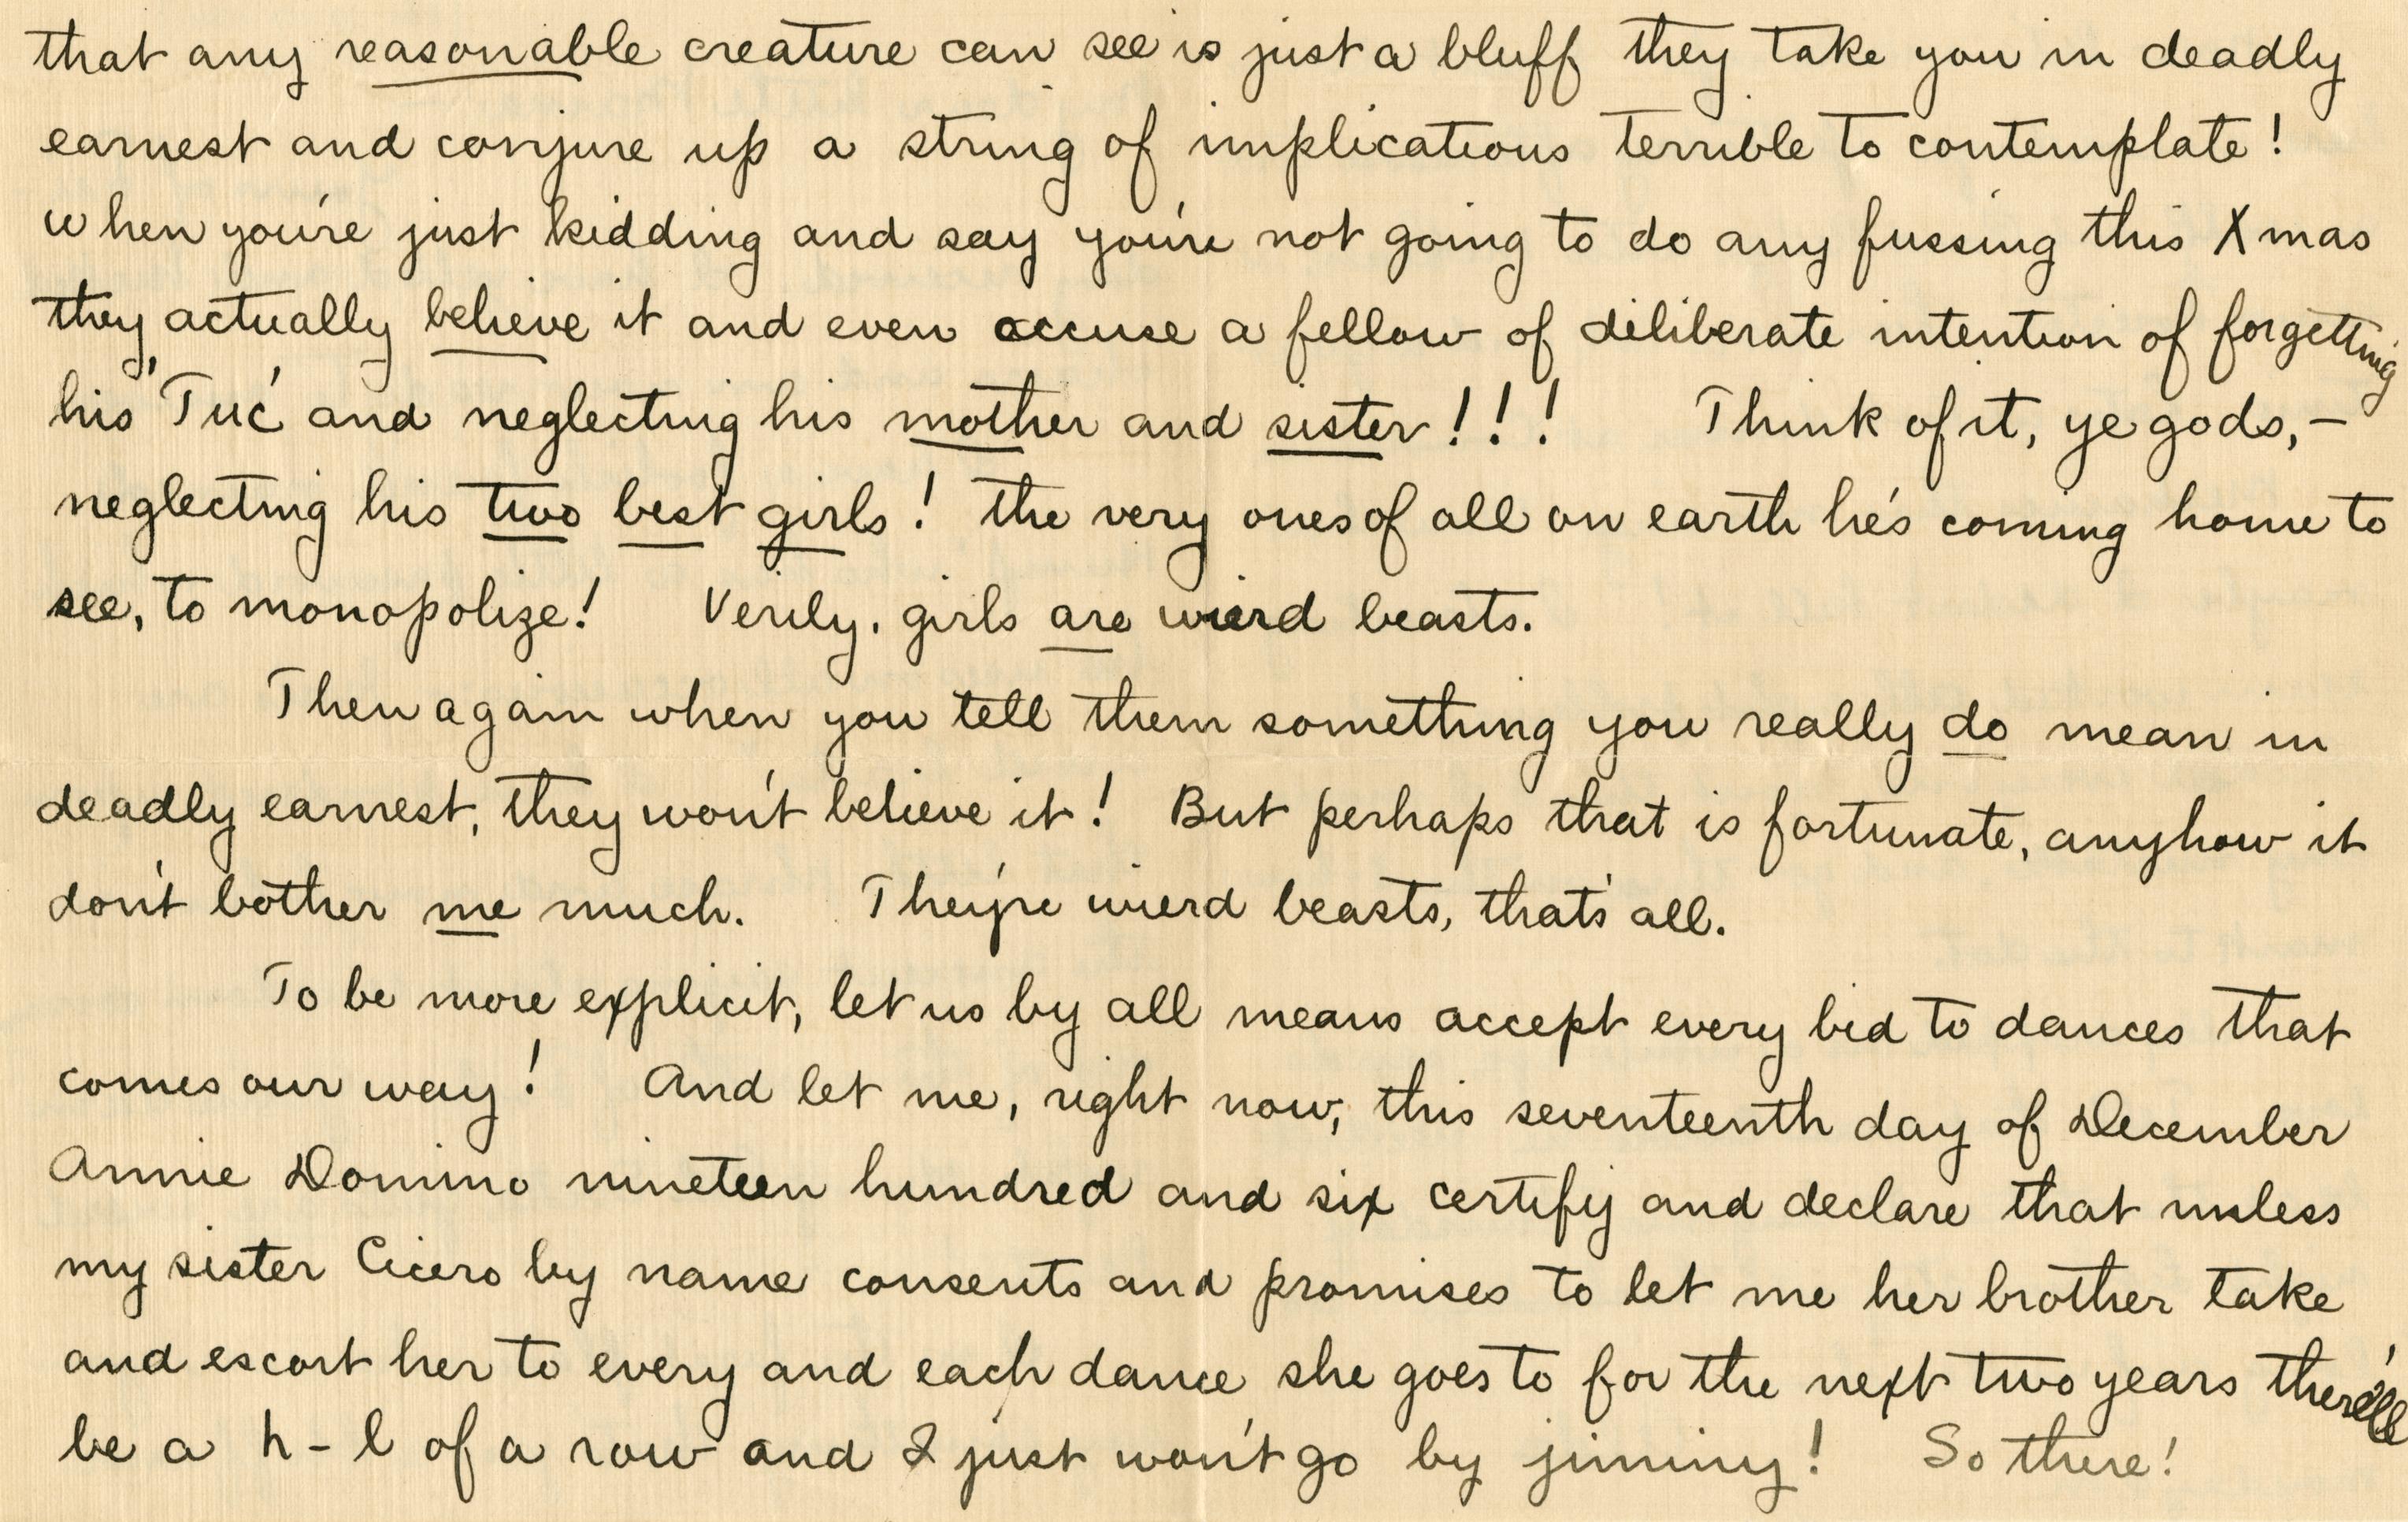 that any reasonable creature can see is just a bluff they take you in deadly
earnest and conjure up a string of implications terrible to contemplate!
when you're just kidding and say you're not going to do any fussing this Xmas
they actually believe it and even accuse a fellow of diliberate intention of forgetting
his 'Tuc' and neglecting his mother and sister!!! Think of it, ye gods, –
neglecting his two best girls! the very ones of all on earth he's coming home to
see, to monopolize! Verily, girls are wierd beasts.
Then again when you tell them something you really do mean in
deadly earnest, they won't believe it! But perhaps that is fortunate, anyhow it
don't bother me much. They're wierd beasts, that's all.
To be more explicit, let us by all means accept every bid to dances that
comes our way! And let me, right now, this seventeenth day of December
Annie Domino nineteen hundred and six certify and declare that unless
my sister Cicero by name consents and promises to let me her brother take
and escort her to every and each dance she goes to for the next two years there'll
be a h–l of a row and I just won't go by jiminy! So there!